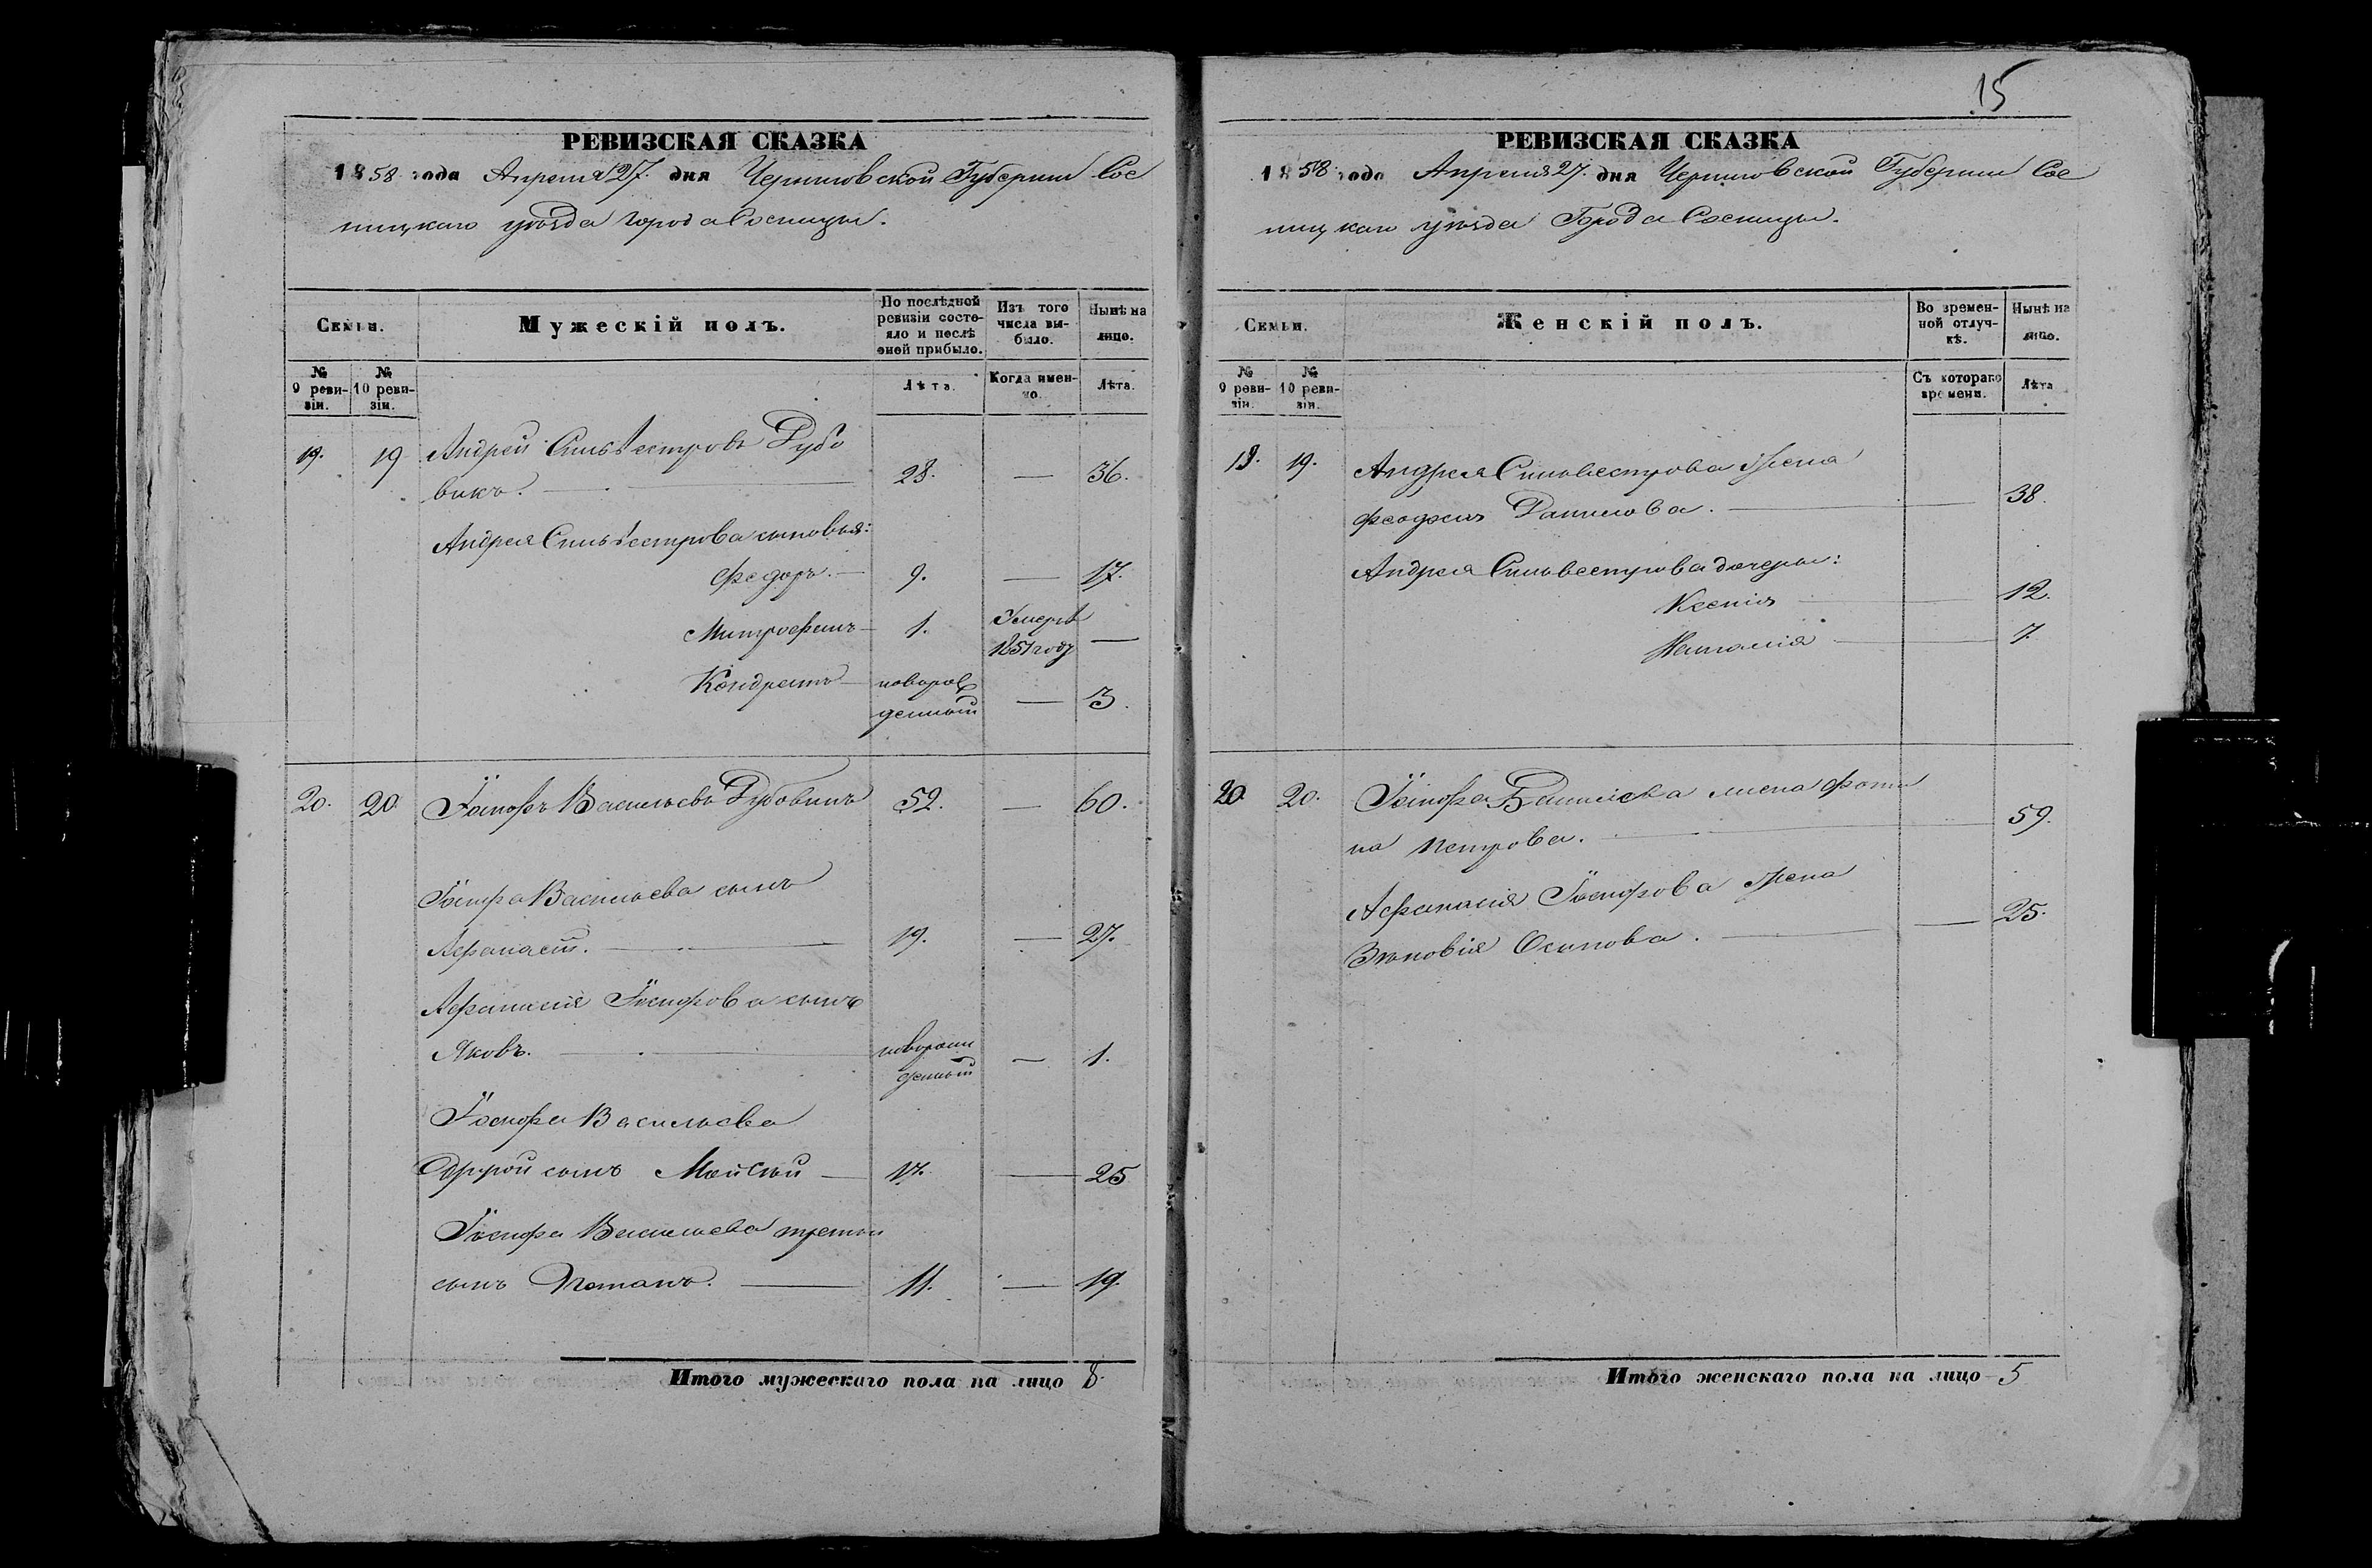 РЕВИЗСКАЯ СКАЗКА
1858 года Апреля 27. дня Черниговской Губернии Сос
ницкаго уѣзда города Сосницы.
Семьи.
Мужескій полъ.
По послѣдной ревизіи состояло и послѣ оной прибыло.
Изъ того числа выбыло.
Нынѣ на лицо.
№ 9 ревизіи.
№ 10 ревизіи.
Лѣта.
Когда именно.
Лѣта.
19. 19 Андрей Сильвестровъ Дубо
викъ. 28. — 36.
Андрея Сильвестрова сыновья:
Федоръ. — 9. — 17.
Митрофанъ — 1. Умеръ 1851 году —
Кондратъ — новорожденный — 3.
20. 20 Іосифъ Васильевъ Дубовикъ 52. — 60.
Іосифа Васильева сынъ
Афанасій. 19. — 27.
Афанасія Іосифова сынъ
Яковъ. новорожденный — 1.
Іосифа Васильева
другой сынъ Мойсѣй — 17. — 25
Іосифа Васильева третій
сынъ Потапъ. — 11. — 19.
Итого мужескаго пола на лицо 8.
15
РЕВИЗСКАЯ СКАЗКА
1858 года Апреля 27. дня Черниговской Губернии Сос
ницкаго уѣзда Города Сосницы.
Семьи.
Женскій полъ.
Во временной отлучкѣ.
Нынѣ на лицо.
№ 9 ревизіи.
№ 10 ревизіи.
Съ котораго времени.
Лѣта
19. 19. Андрея Сильвестрова жена
Данилова. — 38.
Андрея Сильвестрова дочери:
Ксенія — 12.
Наталія — 7.
20. 20. Іосифа Васильева жена Фоти
на Петрова. — 59.
Афанасія Іосифова жена
Зѣновія Осипова. — 25.
Итого женскаго пола на лицо 5